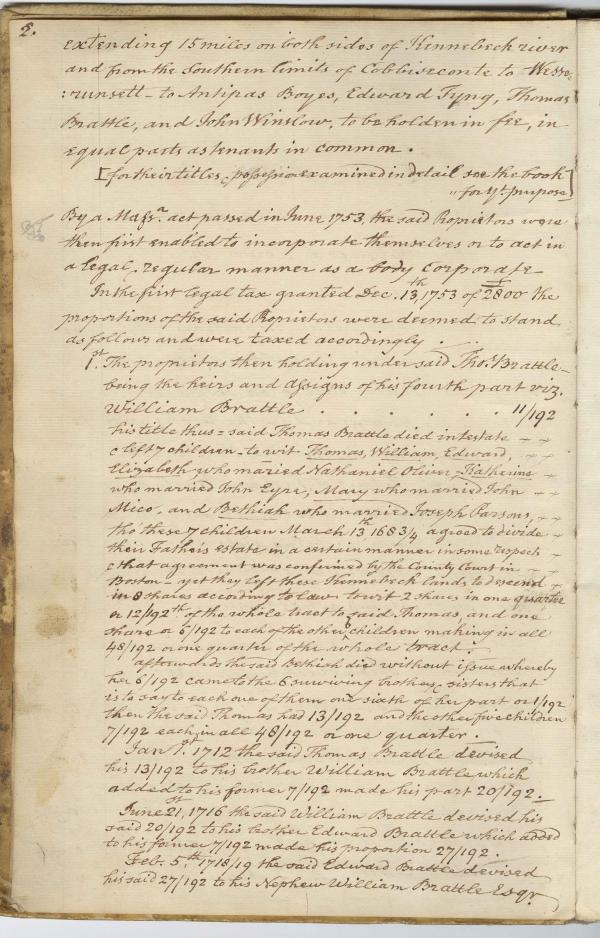 2.
extending 15 miles on both sides of Kennebeck river
and from the Southern limits of Cobbiseconte to Wesse
:runsett - to Antipas Boyes, Edward Tyng, Thomas
Brattle, and John Winslow, to be holden in fee, in
equal parts as tenants in common.
[for their titles & possession examined in detail see the book
" for yt. purpose]
By a Massa. act passed in June 1753, the said Proprietors were
then first enabled to incorporate themselves or to act in
a legal, regular manner as a body Corporate
In the first legal tax granted Dec. 13th, 1753 of £2800 the
proportions of the said Proprietors were deemed to stand
as follows and were taxed accordingly.
1st. The proprietors then holding under said Thos. Brattle -
being the heirs and assigns of his fourth part viz.
William Brattle . . . . . . 11/192
his title thus = said Thomas Brattle died intestate
& left 7 children - to wit Thomas, William, Edward,
Elizabeth who maried Nathaniel Oliver - Katherine
who married John Eyre, Mary who married John
Mico, and Bethiah who married Joseph Parsons,
tho these 7 children March 13th 1683/4 agreed to divide
their Fathers estate in a certain manner in some respects
& that agreement was confirmed by the County Court in
Boston - yet they left these Kennebeck lands to descend
in 8 shares according to Law - to wit 2 shares in one quarter
or 12/192th of the whole tract to said Thomas, and one
share or 6/192 to each of the other 6 children making in all
48/192 or one quarter of the whole tract.
afterwards the said Bethiah died without issue whereby
her 6/192 came to the 6 surviving brothers & sisters that
is to say to each one of them one sixth of her part or 1/192
then the said Thomas had 13/192 and the other five children
7/192 each, in all 48/192 or one quarter.
Jan 1st. 1712 the said Thomas Brattle devised
his 13/192 to his brother William Brattle which
added to his former 7/192 made his part 20/192.
June 21st, 1716 the said William Brattle devised his
said 20/192 to his brother Edward Brattle which added
to his former 7/192 made his proportion 27/192.
Feb. 5th. 1718/19 the said Edward Brattle devised
his said 27/192 to his Nephew William Brattle Esqr.